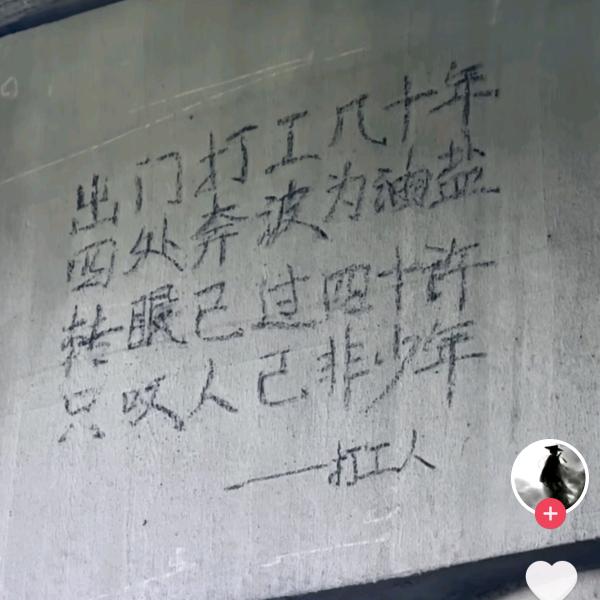 出门打工几十年
四处奔波为油盐
转眼已过四十许
只叹人已非少年
——打工人